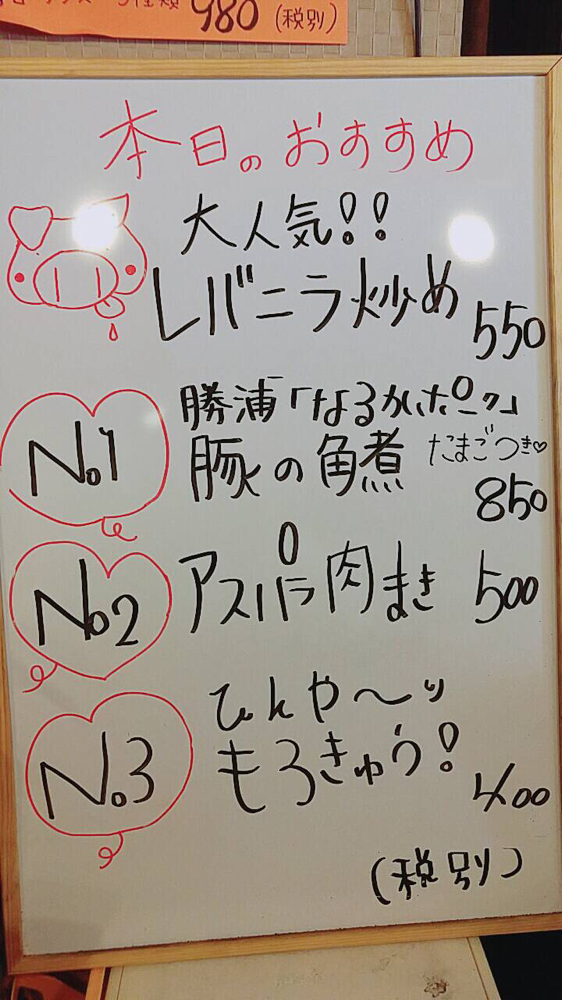 980(税別)
本日のおすすめ
大人気!!
レバニラ炒め 550
No.1
勝浦「なるかポーク」
豚の角煮 たまごつき♡
850
No.2 アスパラ肉まき 500
ひんや〜り
No.3 もろきゅう! 400
(税別)